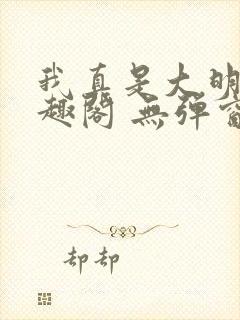 我真是大明
趣阁 無弹窗
却却